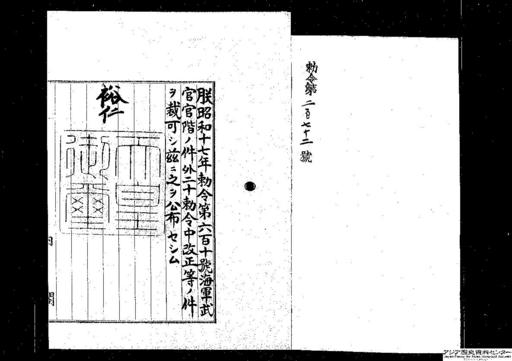 勅令第二百七十二號
朕昭和十七年勅令第六百十號海軍武
官官階ノ件外二十勅令中改正等ノ件
ヲ裁可シ茲ニ之ヲ公布セシム
裕仁
天皇御璽
内閣
アジア歴史資料センター